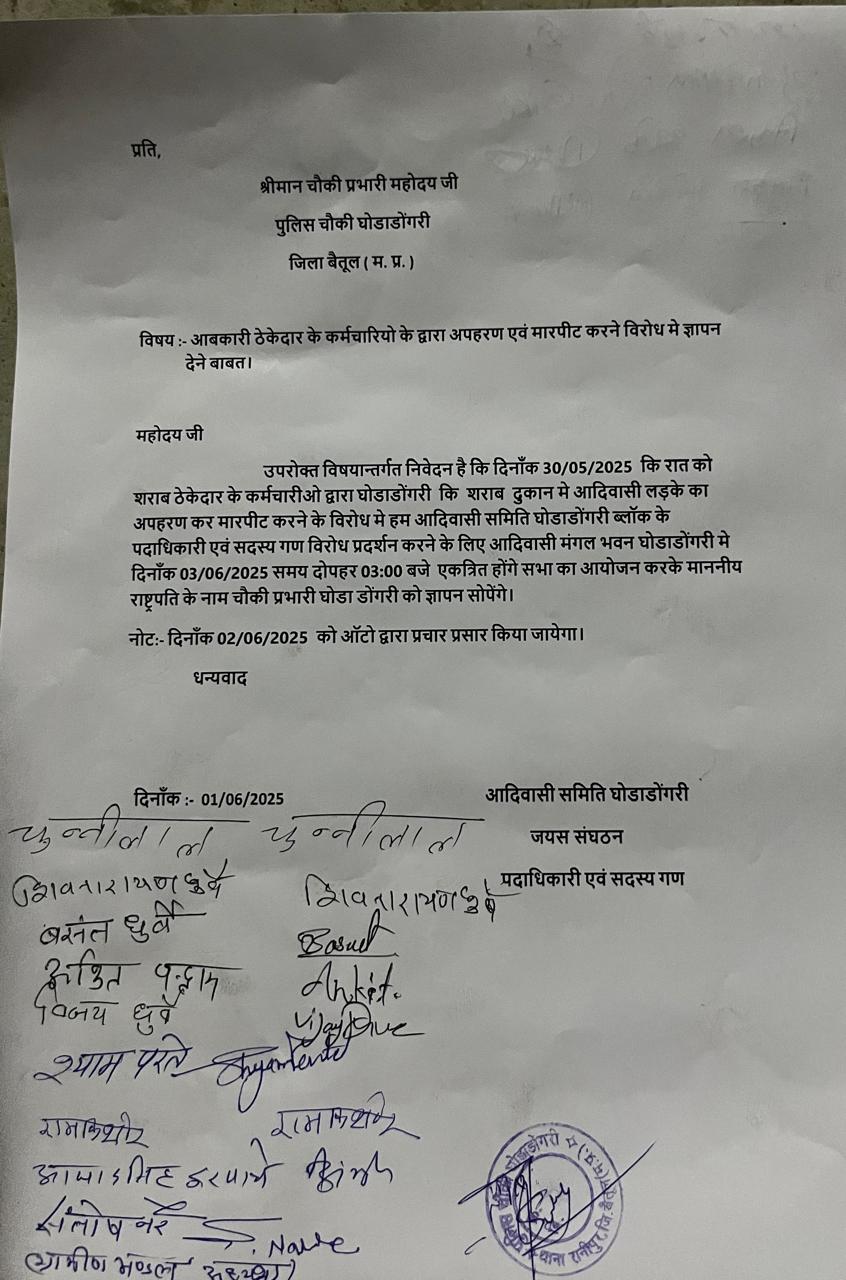 प्रति,
श्रीमान चौकी प्रभारी महोदय जी
पुलिस चौकी घोडाडोंगरी
जिला बैतूल ( म. प्र. )
विषय :- आबकारी ठेकेदार के कर्मचारियो के द्वारा अपहरण एवं मारपीट करने विरोध मे ज्ञापन
देने बाबत।
महोदय जी
उपरोक्त विषयान्तर्गत निवेदन है कि दिनाँक 30/05/2025 कि रात को
शराब ठेकेदार के कर्मचारीओ द्वारा घोडाडोंगरी कि शराब दुकान मे आदिवासी लड़के का
अपहरण कर मारपीट करने के विरोध मे हम आदिवासी समिति घोडाडोंगरी ब्लॉक के
पदाधिकारी एवं सदस्य गण विरोध प्रदर्शन करने के लिए आदिवासी मंगल भवन घोडाडोंगरी मे
दिनाँक 03/06/2025 समय दोपहर 03:00 बजे एकत्रित होंगे सभा का आयोजन करके माननीय
राष्ट्रपति के नाम चौकी प्रभारी घोडा डोंगरी को ज्ञापन सोपेंगे।
नोटः- दिनाँक 02/06/2025 को ऑटो द्वारा प्रचार प्रसार किया जायेगा।
धन्यवाद
दिनाँक :- 01/06/2025 आदिवासी समिति घोडाडोंगरी
चुन्नीलाल चुन्नीलाल जयस संघठन
शिवनारायण धुर्वे शिवनारायण धुर्वे पदाधिकारी एवं सदस्य गण
बसंत धुर्वे
अंकित Ankit.
विजय धुर्वे
श्याम परते
रामकिशोर रामकिशोर
संतोष
ग्रामीण मण्डल अध्यक्ष
घोड़ाडोंगरी थाना रानीपुर, जि. बैतूल (म.प्र.)